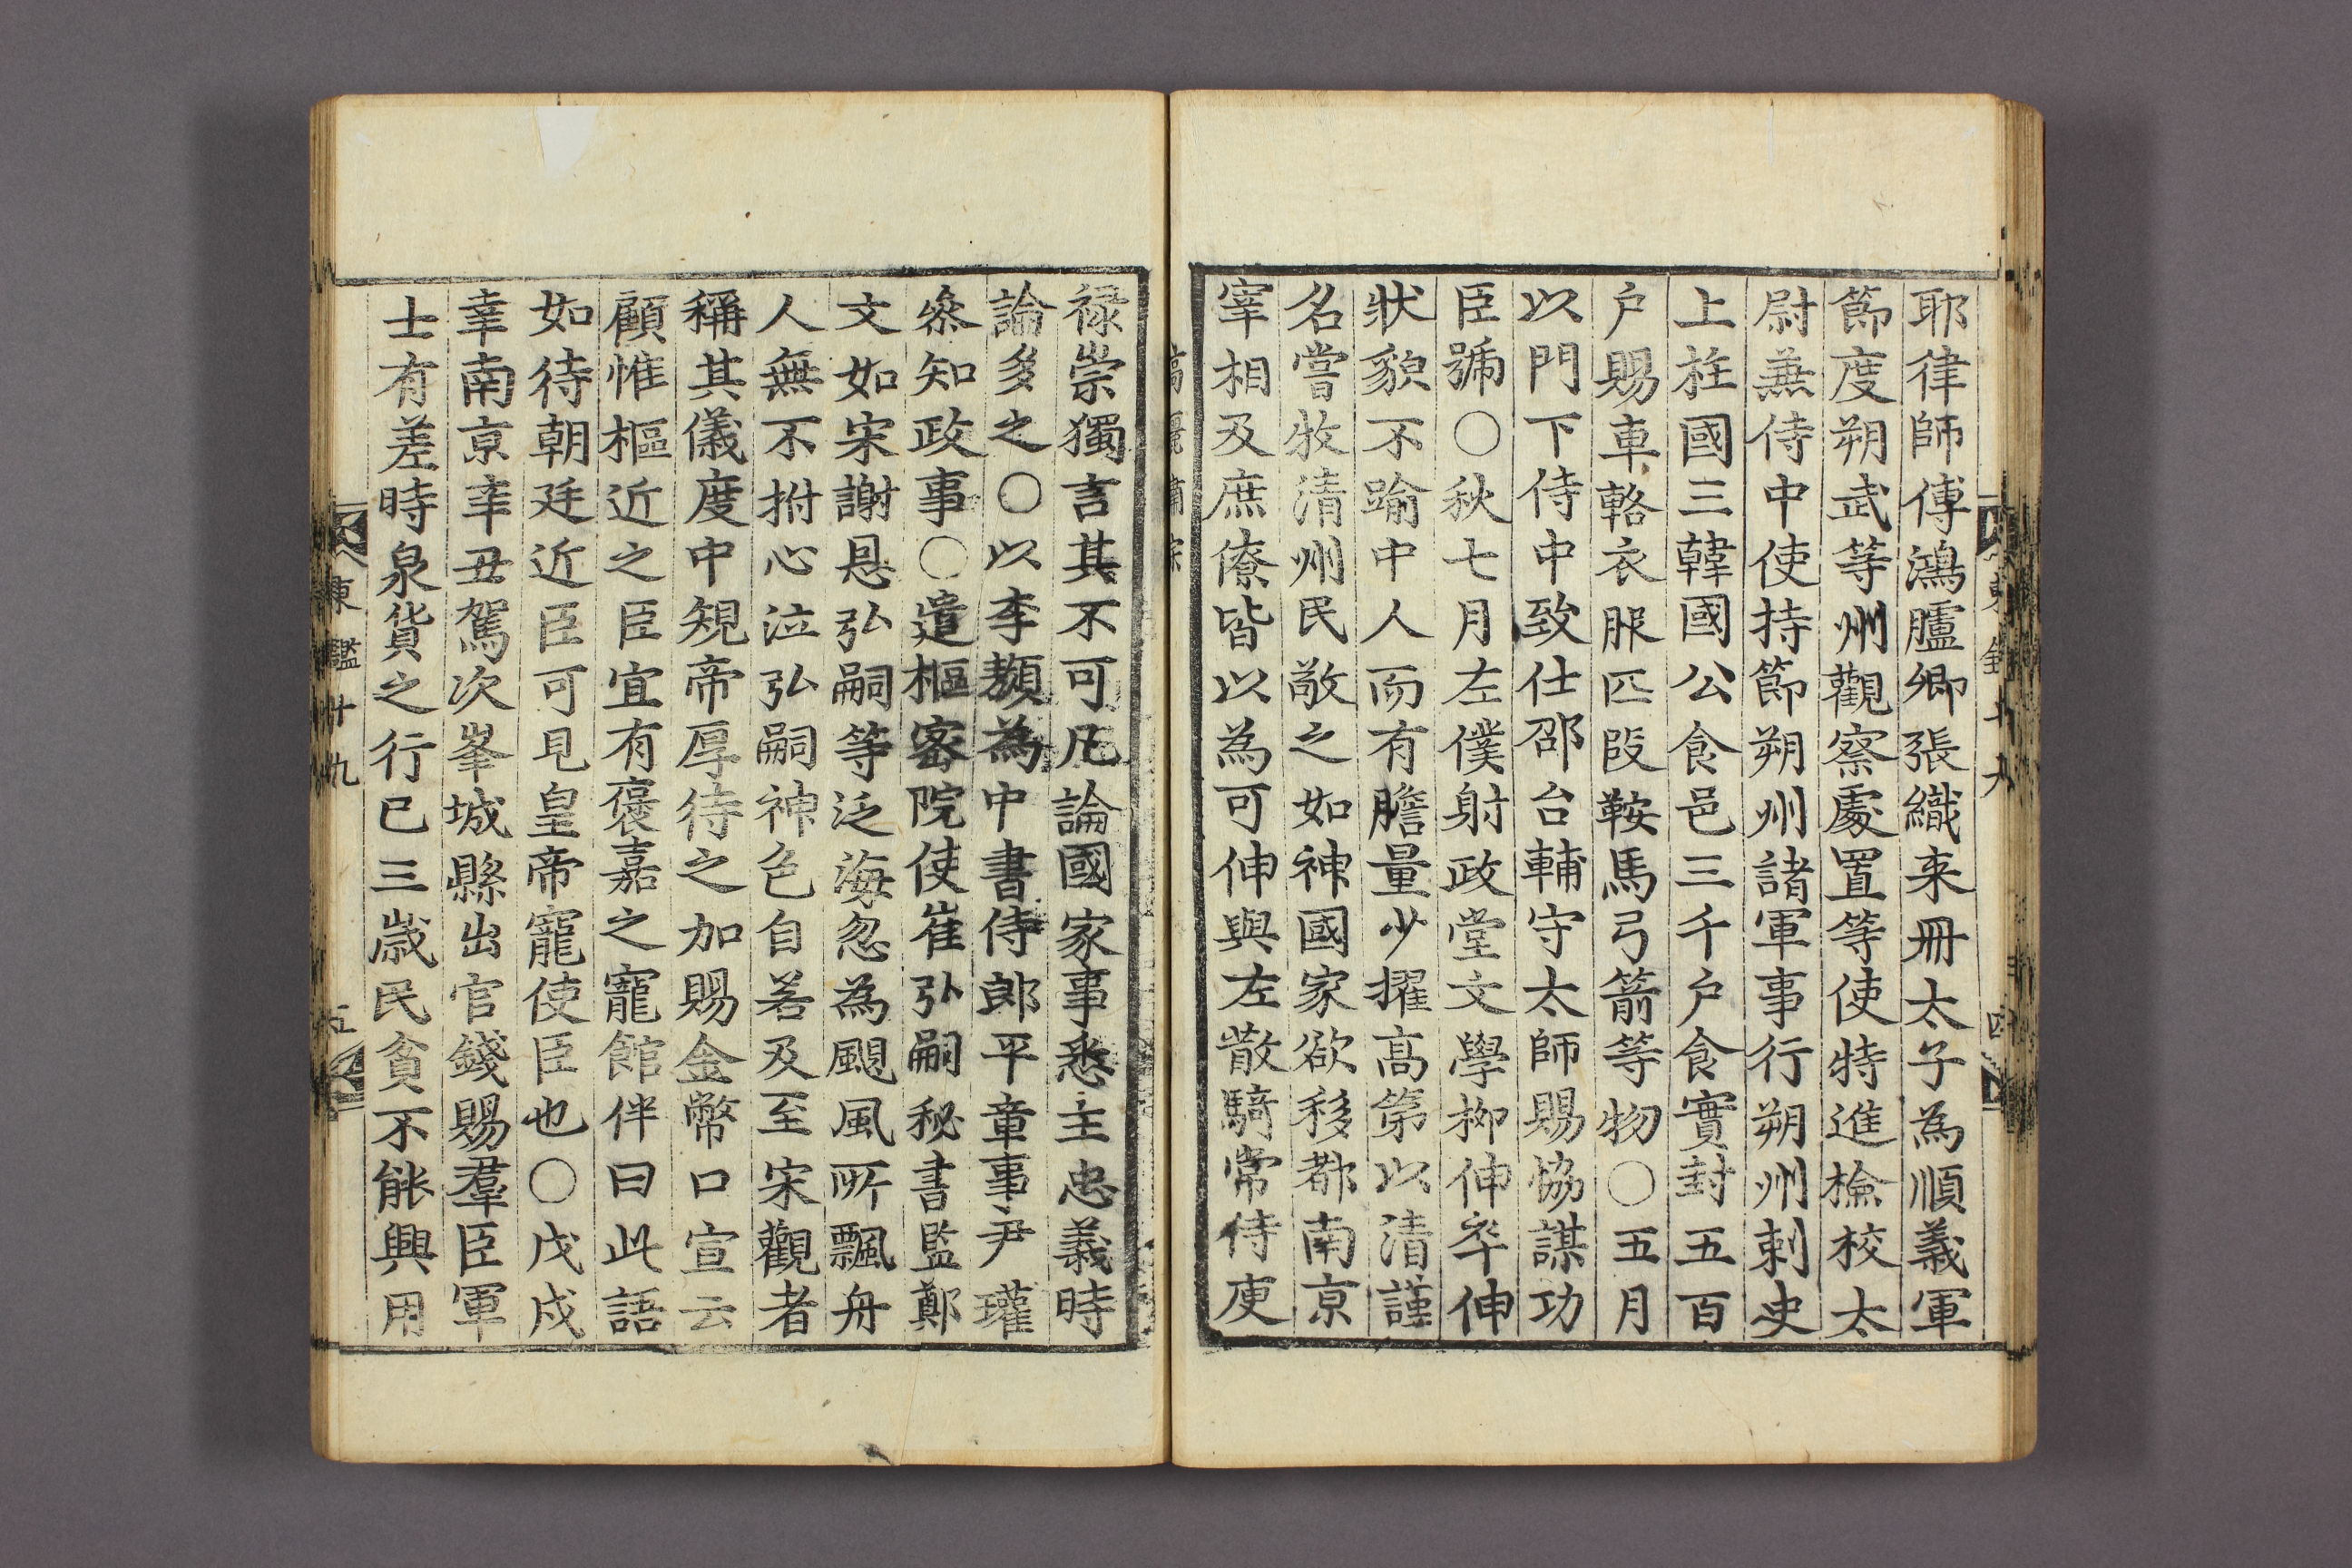 耶律師傅鴻臚卿張織来冊太子為順義軍
節度朔武等州觀察處置等使特進檢校太
尉兼侍中使持節朔州諸軍事行朔州刺史
上柱國三韓國公食邑三千戶食實封五百
戶賜車輅衣服匹段鞍馬弓箭等物〇五月
以門下侍中致仕邵台輔守太師賜協謀功
臣號〇秋七月左僕射政堂文學柳伸卒伸
狀貌不踰中人而有膽量少擢高第以清謹
名嘗牧清州民敬之如神國家欲移都南京
宰相及庶僚皆以為可伸與左散騎常侍庾
禄崇獨言其不可凡論國家事悉主忠義時
論多之〇以李䫨為中書侍郎平章事尹瓘
叅知政事〇遣樞密院使崔弘嗣秘書監鄭
文如宋謝恩弘嗣等泛海忽為颶風所飄舟
人無不拊心泣弘嗣神色自若及至宋觀者
稱其儀度中規帝厚待之加賜金幣口宣云
顧惟樞近之臣宜有褒嘉之寵館伴曰此語
如待朝廷近臣可見皇帝寵使臣也〇戊戌
幸南京辛丑駕次峯城縣出官錢賜羣臣軍
士有差時泉貨之行已三歲民貧不能興用
東鑑十九
五
四